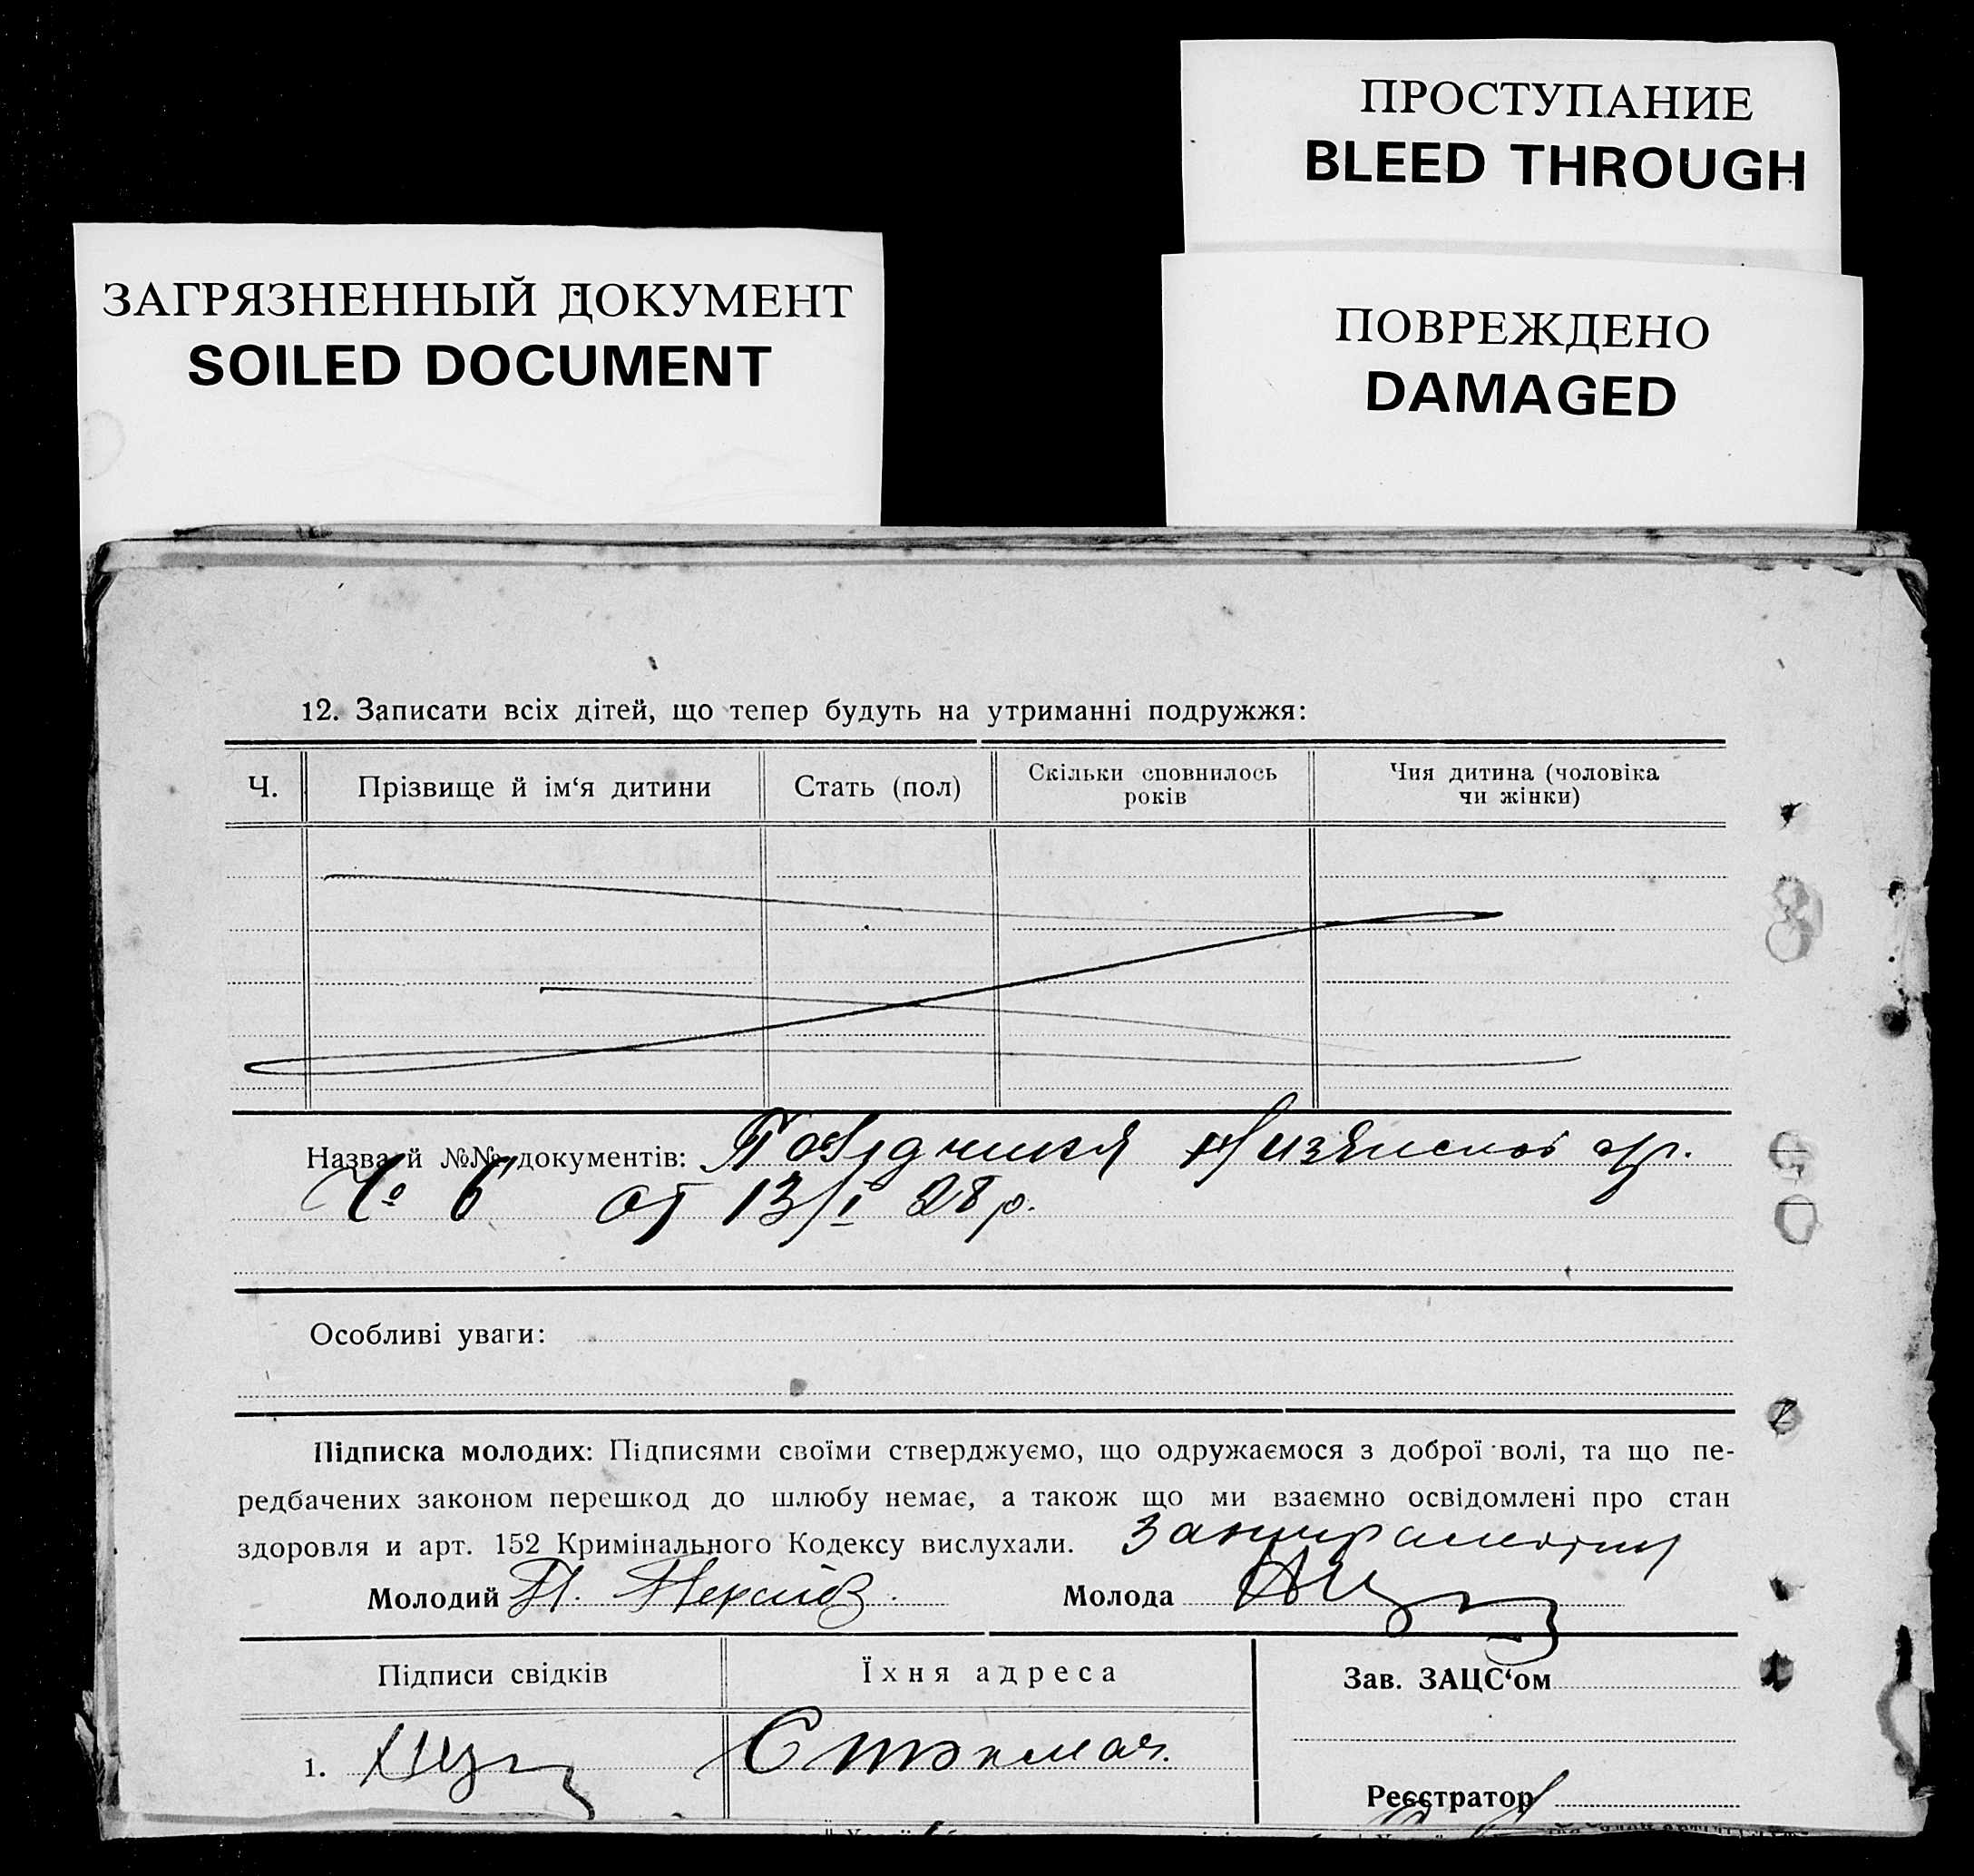 ПРОСТУПАНИЕ
BLEED THROUGH
ЗАГРЯЗНЕННЫЙ ДОКУМЕНТ
SOILED DOCUMENT
ПОВРЕЖДЕНО
DAMAGED
12. Записати всіх дітей, що тепер будуть на утриманні подружжя:
Ч. Прізвище й ім‘я дитини Стать (пол) Скільки сповнилось років Чия дитина (чоловіка чи жінки)
Назва й №№ документів:
№ 6 от 13/I 28 р.
Особливі уваги:
Підписка молодих: Підписями своїми стверджуємо, що одружаємося з доброї волі, та що пе-
редбачених законом перешкод до шлюбу немає, а також що ми взаємно освідомлені про стан
здоровля и арт. 152 Кримінального Кодексу вислухали.
Молодий Молода
Підписи свідків Їхня адреса Зав. ЗАЦС‘ом
1.
Реєстратор